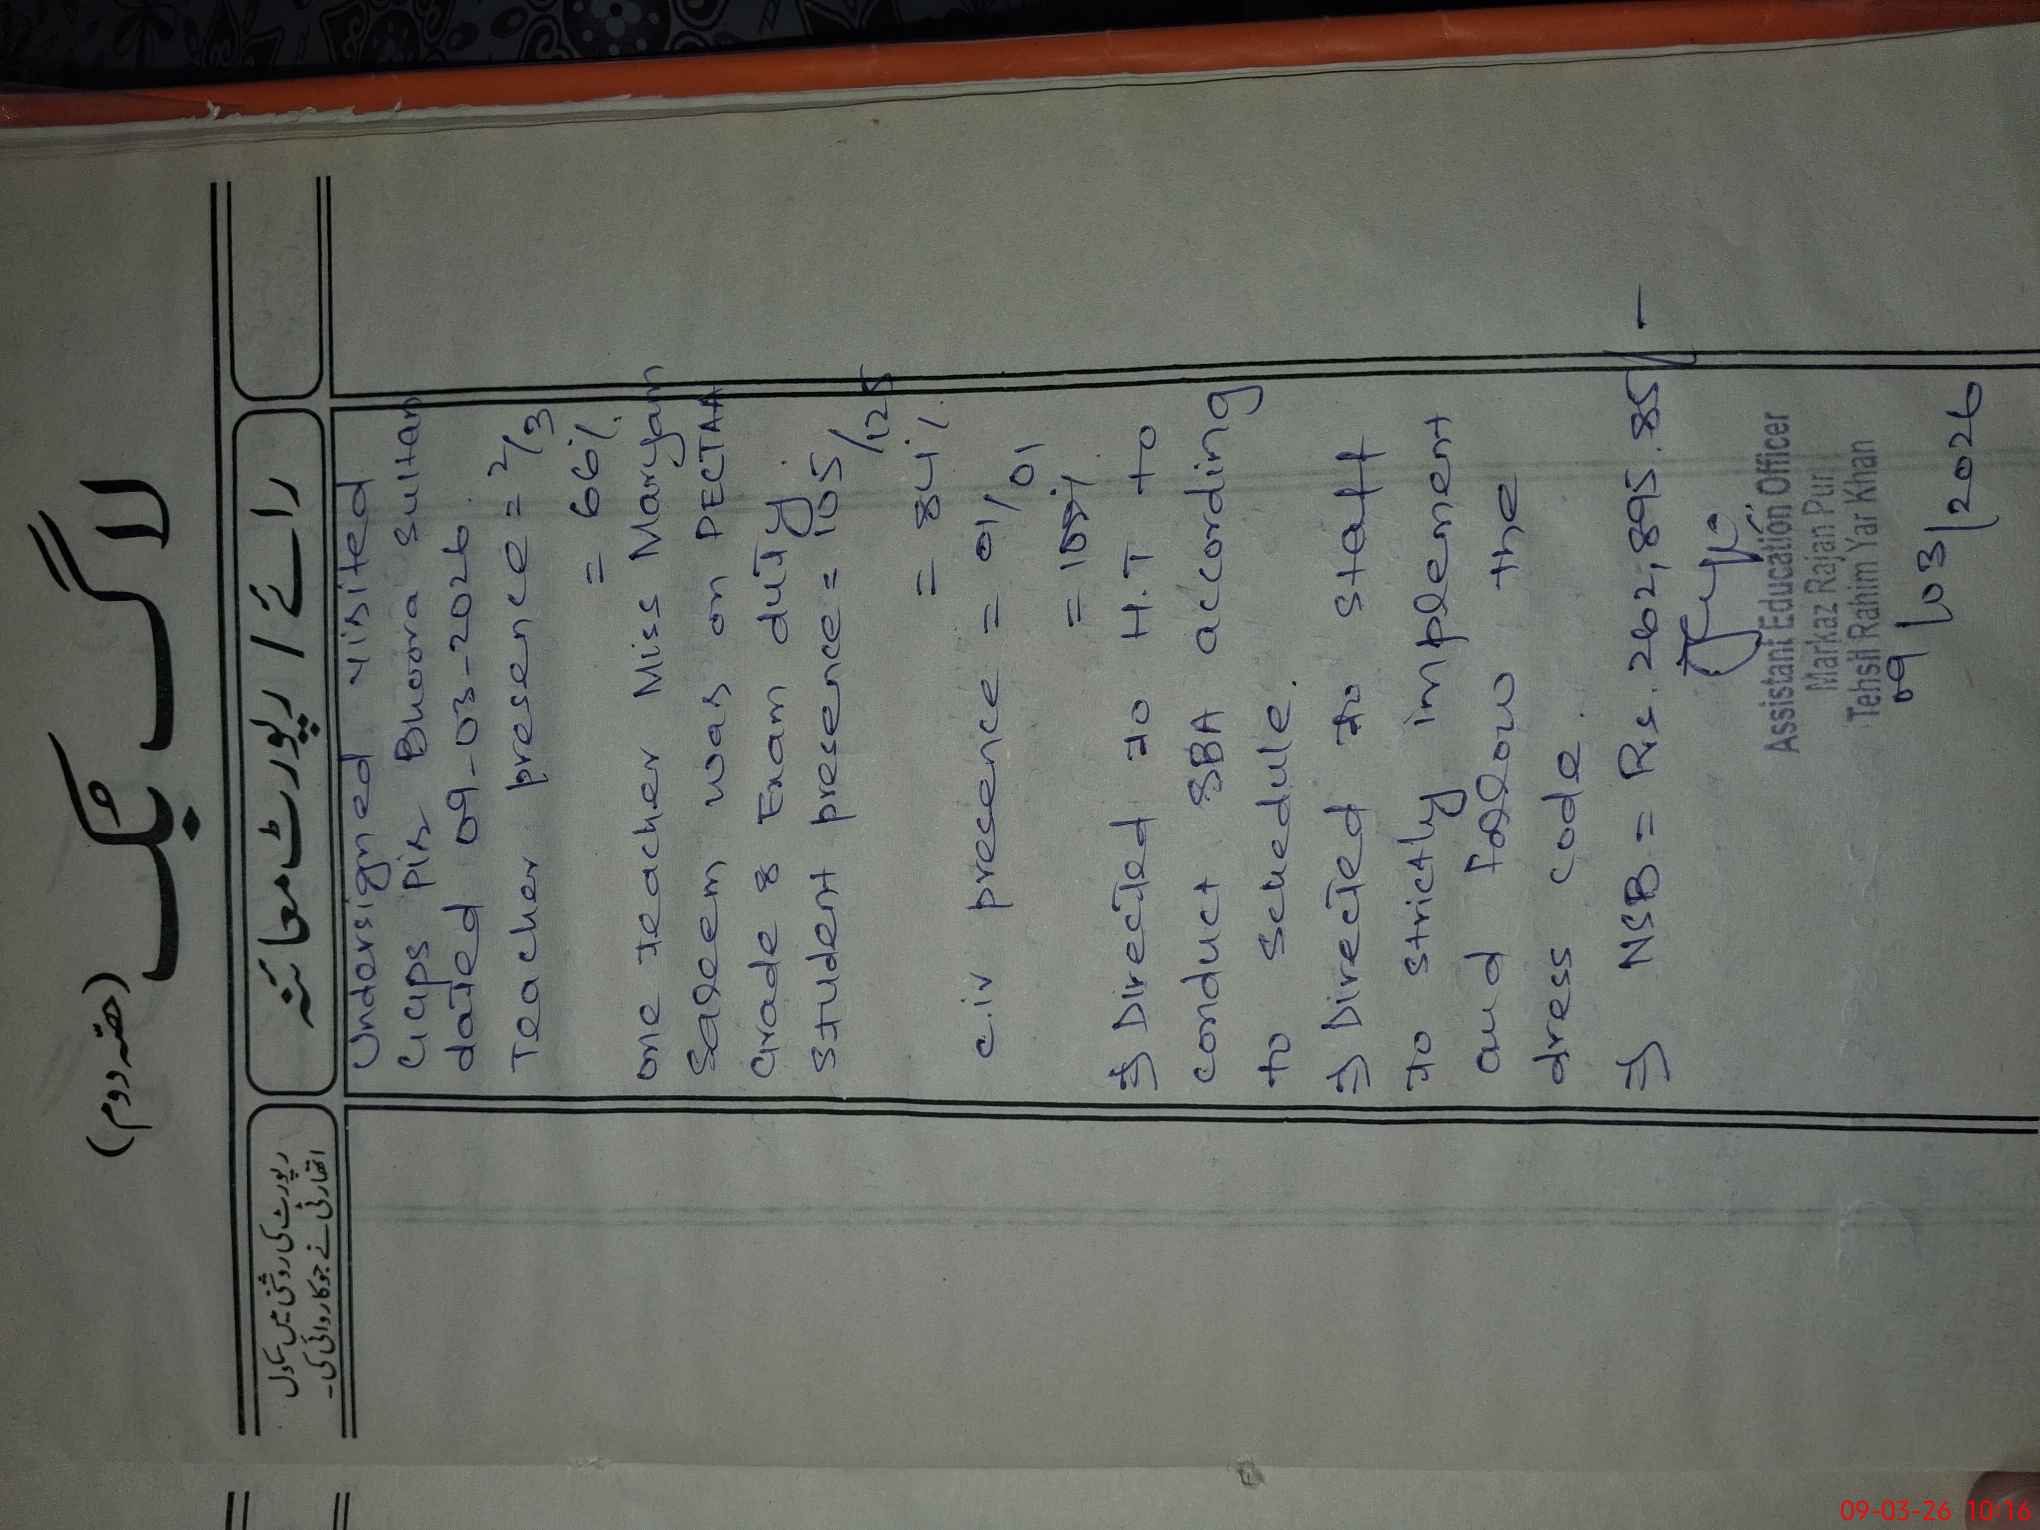 لاگ بک
(حصہ دوم)
رائے / رپورٹ معائنہ
رپورٹ کی روشنی میں سکول
اتھارٹی نے جو کاروائی کی۔
Undersigned visited
GGPS Pir Bhoora Sultan
dated 09-03-2026.
Teacher presence = 2/3
= 66%
one teacher Miss Maryam
Saleem was on PECTAA
Grade 8 Exam duty
student presence = 105/125
= 84%
c.iv presence = 01/01
= 100%
⇒ Directed to H.T to
conduct SBA according
to schedule.
⇒ Directed to staff
to strictly implement
and follow the
dress code.
⇒ NSB = Rs. 262,895.85/-
Assistant Education Officer
Markaz Rajan Pur
Tehsil Rahim Yar Khan
09/03/2026
09-03-26 10:16